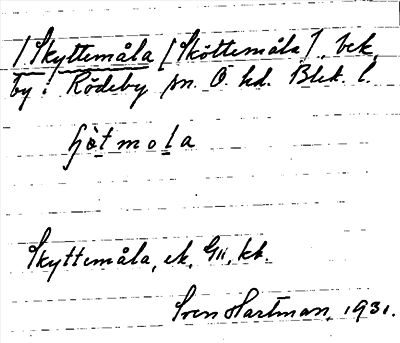 /Skyttemåla [Sköttemåla], bek.
by i Rödeby sn. Ö. hd. Blek. l.
hø̀tmola
Skyttemåla, ek, GII, kb.
Sven Hartman, 1931.